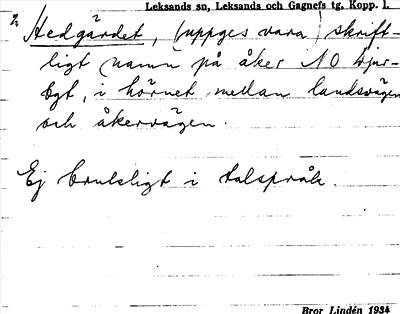 Leksands sn, Leksands och Gagnefs tg, Kopp. l.
2 Hedgärdet, (uppges vara) skrift-
ligt namn på åker NO
i hörnet mellan landsvägen
och åkervägen.
Ej brukligt i talspråk.
Bror Lindén 1934